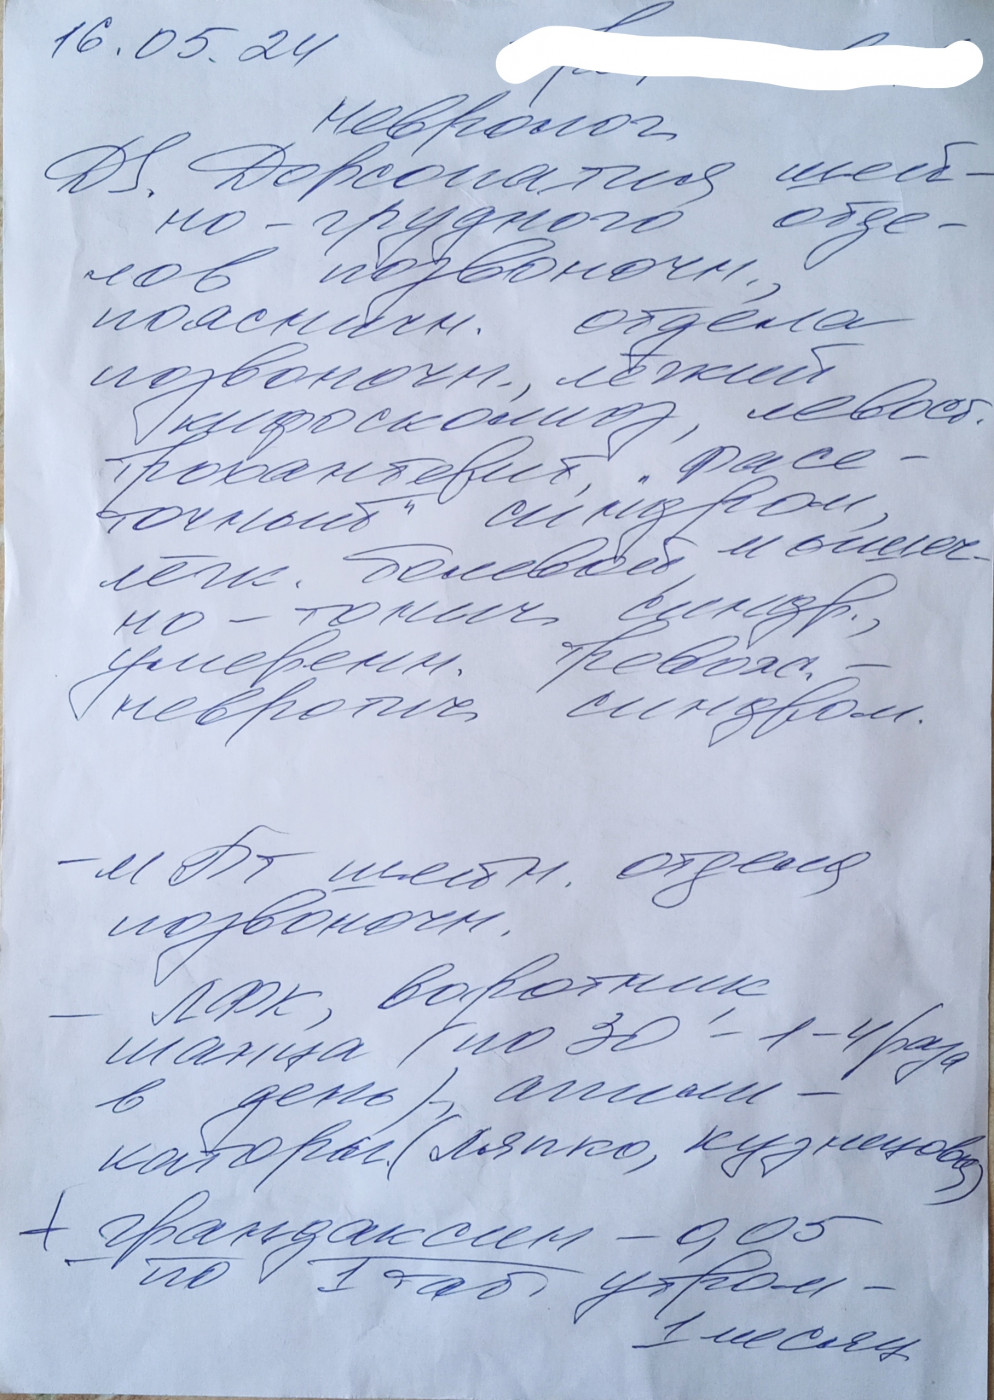 16.05.24
невролог
DS. Дорсопатия шей-
но-грудного отде-
лов позвоночн.,
пояснични. отдела
позвоночн., лёгкий
кифосколиоз, левост.
трохантерит, "фасе-
точный" синдром,
лёгк. болевой, мышеч-
но-тонич. синдр.,
умеренн. тревож.-
невротич. синдром.
- МРТ шейн. отдела
позвоночн.
- ЛФК, воротник
шанца (по 30' - 1-4 раза
в день), аппли-
каторы (Ляпко, Кузнецова)
+ грандаксин - 0,05
по 1 таб. утром -
1 месяц